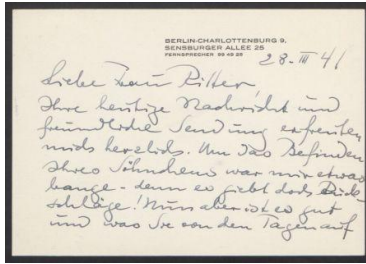 BERLIN-CHARLOTTENBURG 9,
SENSBURGER ALLEE 26
FERNSPRECHER 99 49 28
28-III 41
Liebe Frau Ritter
Ihre heutige Nachricht und
freundliche Sendung erfreuten
mich herzlich. Um das Befinden
Ihres Söhnchens war mir etwas
bange - denn es giebt doch Rück-
schläge! Nun aber ist es gut
und was Sie von den Tagen auf